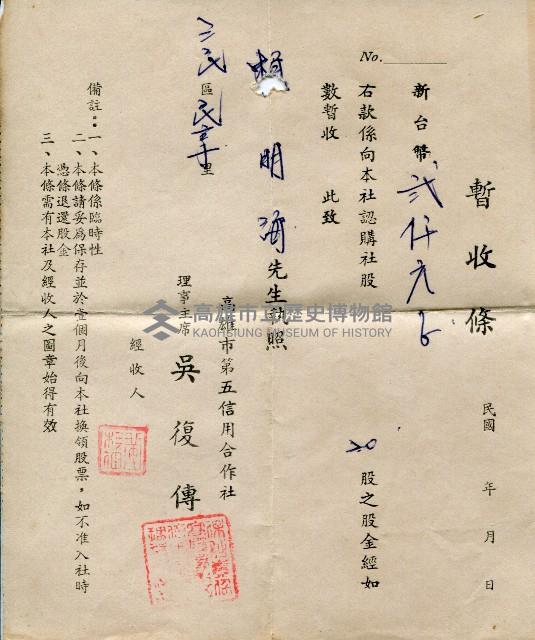 No.
暫收條
民國 年 月 日
新台幣貳仟元正
右款係向本社認購社股 20 股之股金經如
數暫收 此致
賴明海先生執照
三民區民享里
高雄市第五信用合作社
理事主席 吳復傳
經收人
備註：一、本條係臨時性
二、本條請妥為保存並於壹個月後向本社換領股票，如不准入社時
憑條退還股金
三、本條需有本社及經收人之圖章始得有效
高雄市立歷史博物館
KAOHSIUNG MUSEUM OF HISTORY